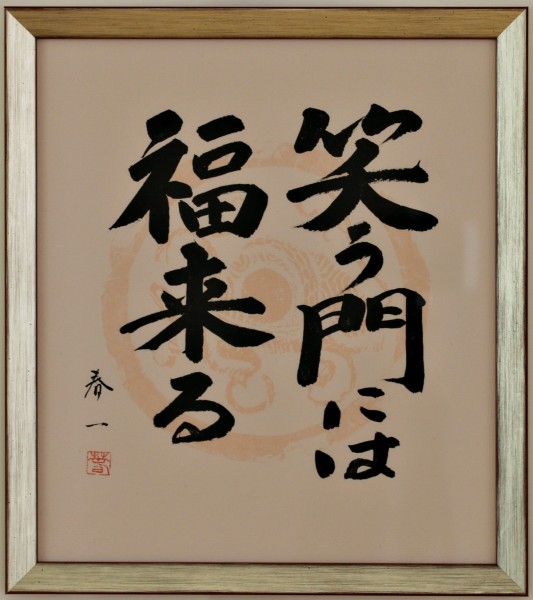 笑う門には
福来る
春一